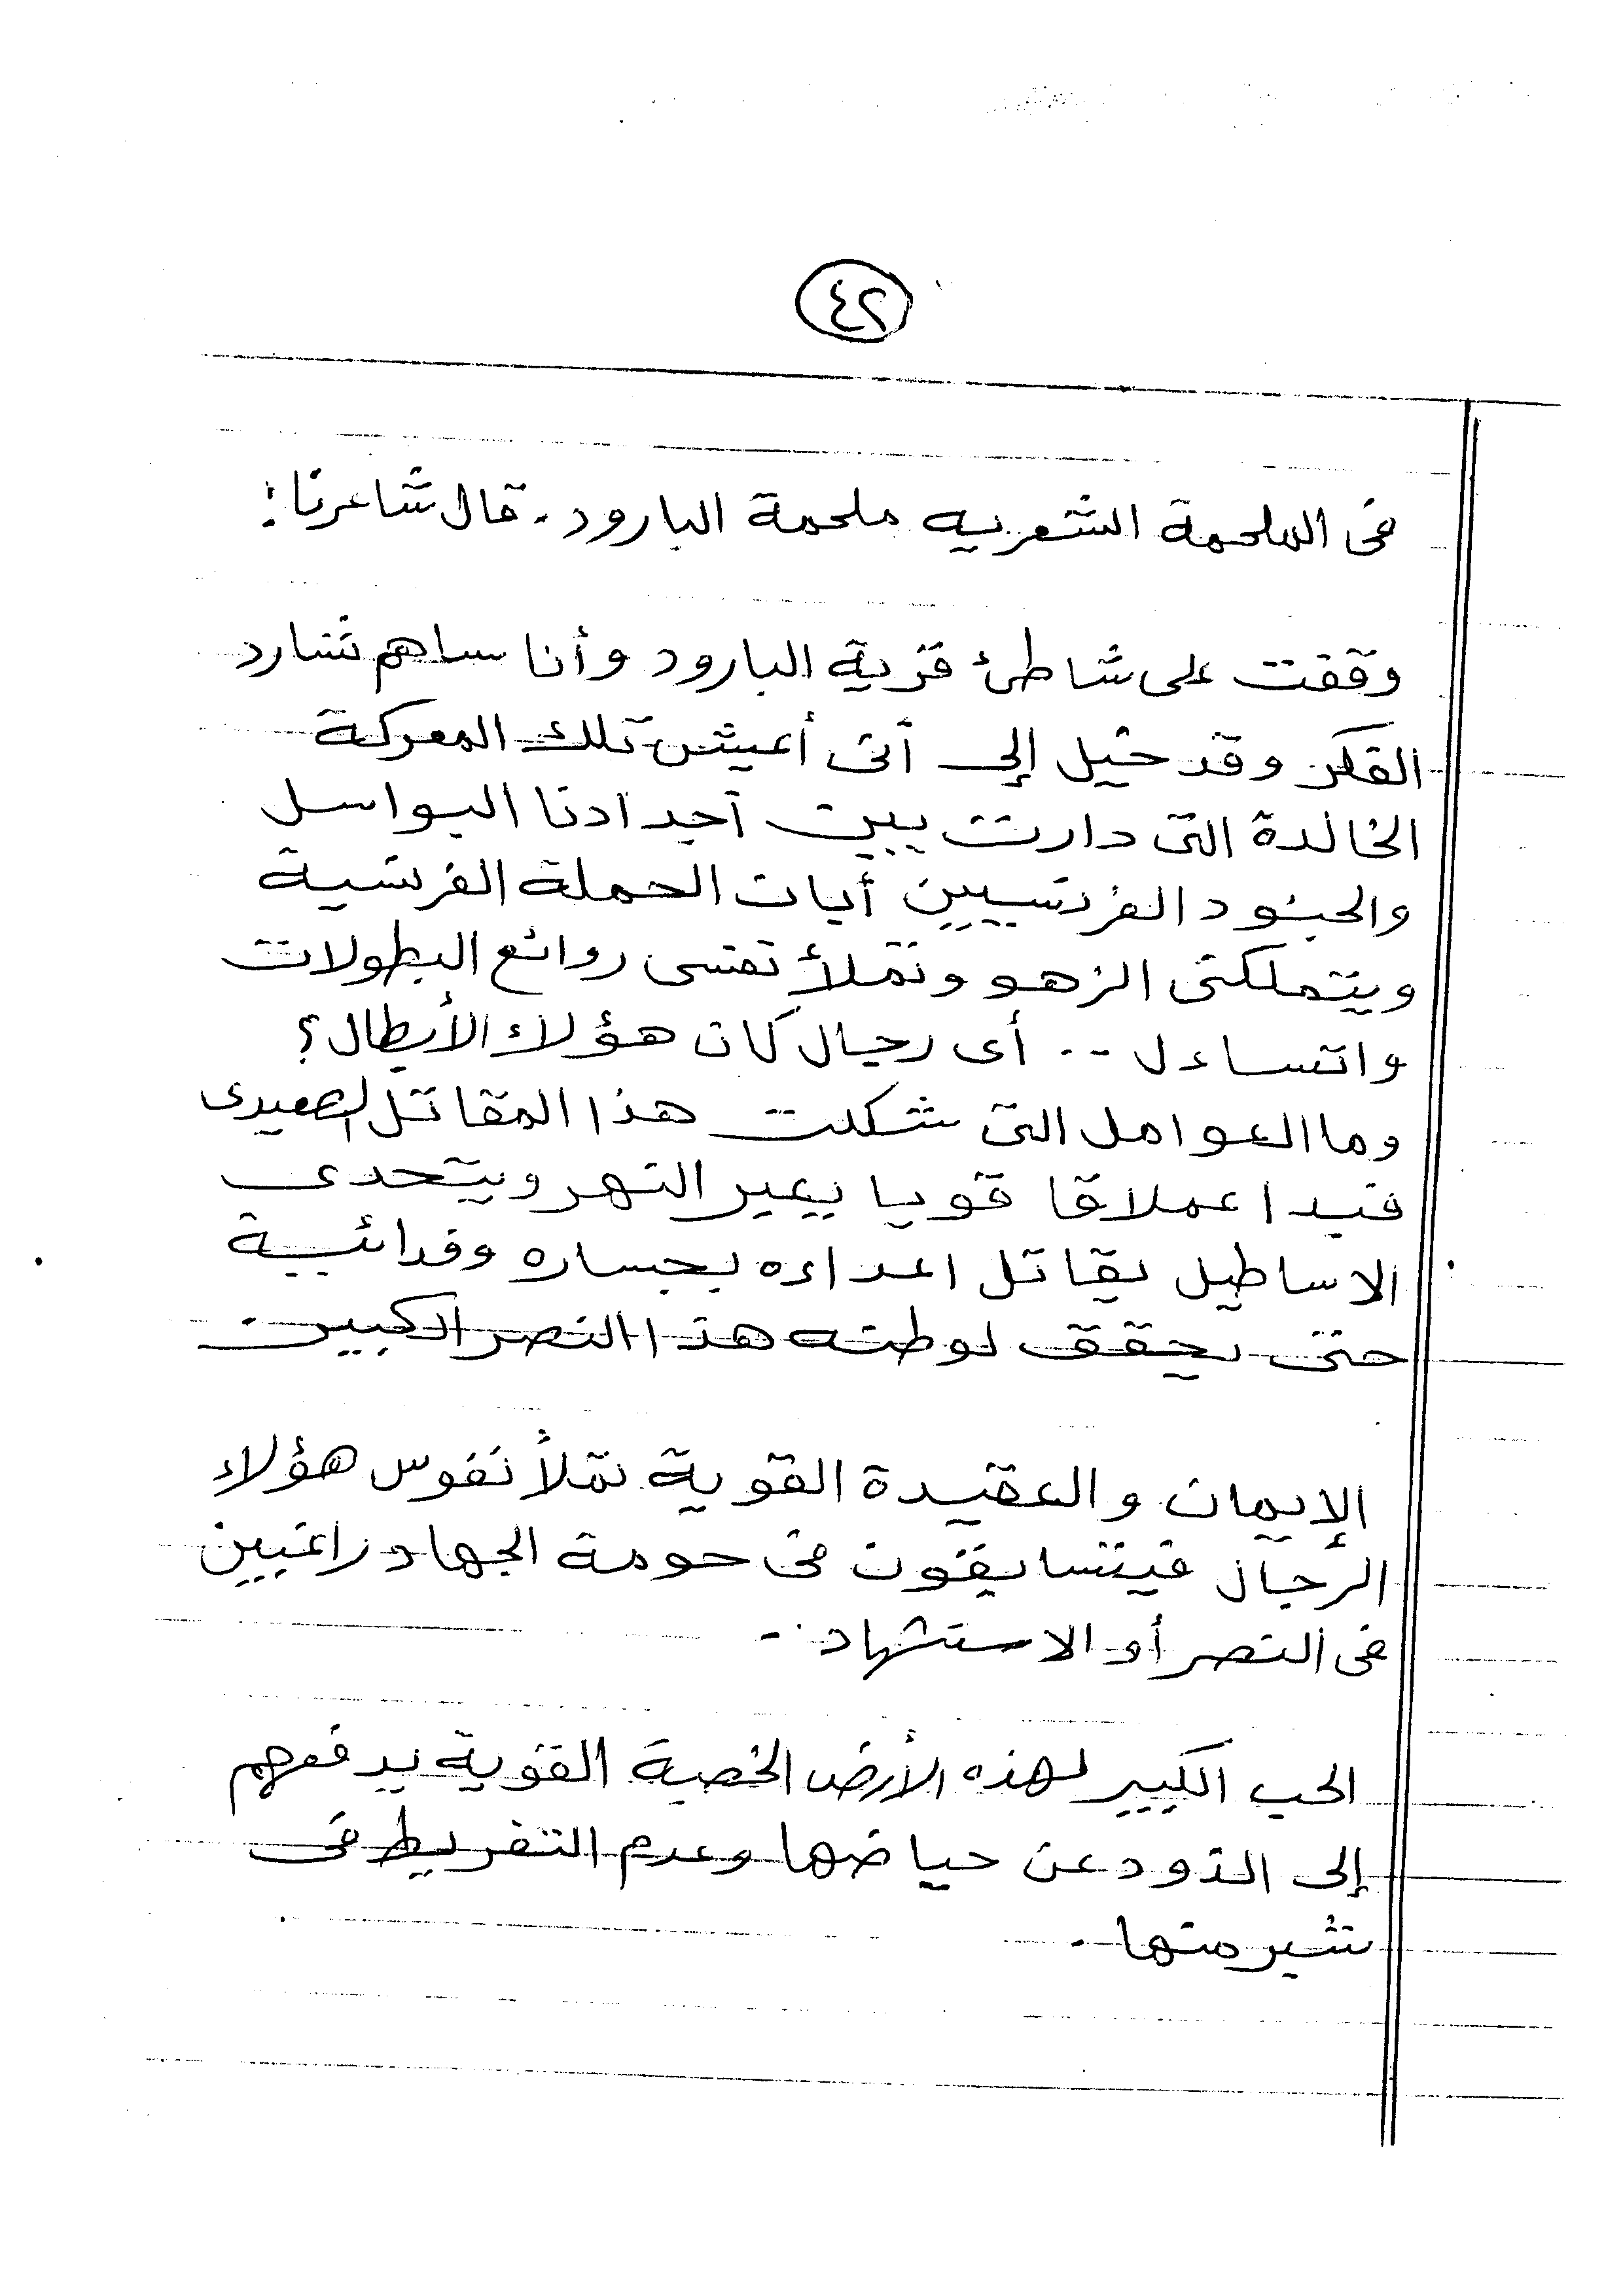 ٤٢
فى الملحمة الشعريه ملحمة البارود. قال شاعرنا:
وقفت على شاطئ قرية البارود وأنا ساهم شارد
الفكر وقد خيل إلى أنى أعيش تلك المعركة
الخالدة التى دارت بين أجدادنا البواسل
والجنود الفرنسيين أبان الحملة الفرنسية
ويتملكنى الزهو وتملأ نفسى روائع البطولات
واتساءل .. أى رجال كان هؤلاء الأبطال؟
وما العوامل التى شكلت هذا المقاتل الصعيدى
فبدا عملاقا قويا يعبر النهر ويتحدى
الاساطيل يقاتل اعداءه بجساره وفدائية
حتى يحقق لوطنه هذا النصر الكبير
الإيمان والعقيدة القوية تملأ نفوس هؤلاء
الرجال فيتسابقون فى حومة الجهاد راغبين
فى النصر أو الاستشهاد..
الحب الكبير لهذه الأرض الخصبة القوية يدفعهم
إلى الذود عن حياضها وعدم التفريط فى
شبر منها.